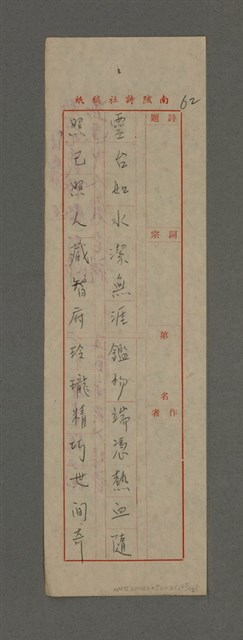 南陔詩社稿紙
62
詩題
詞宗
第 名
作者
靈台如水潔無涯鑑物端憑熱血隨
照己照人藏智府玲瓏精巧世間奇